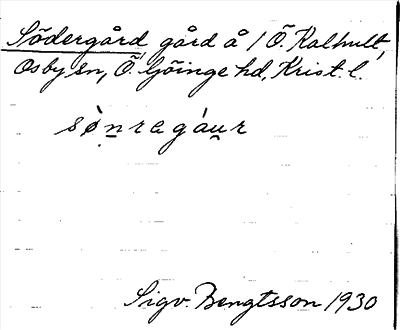 Södergård gård å 1 Ö. Kalhult,
Osby sn, Ö. Göinge hd, Krist. l.
sø̀n̲regáu̲r
Sigv. Bengtsson 1930